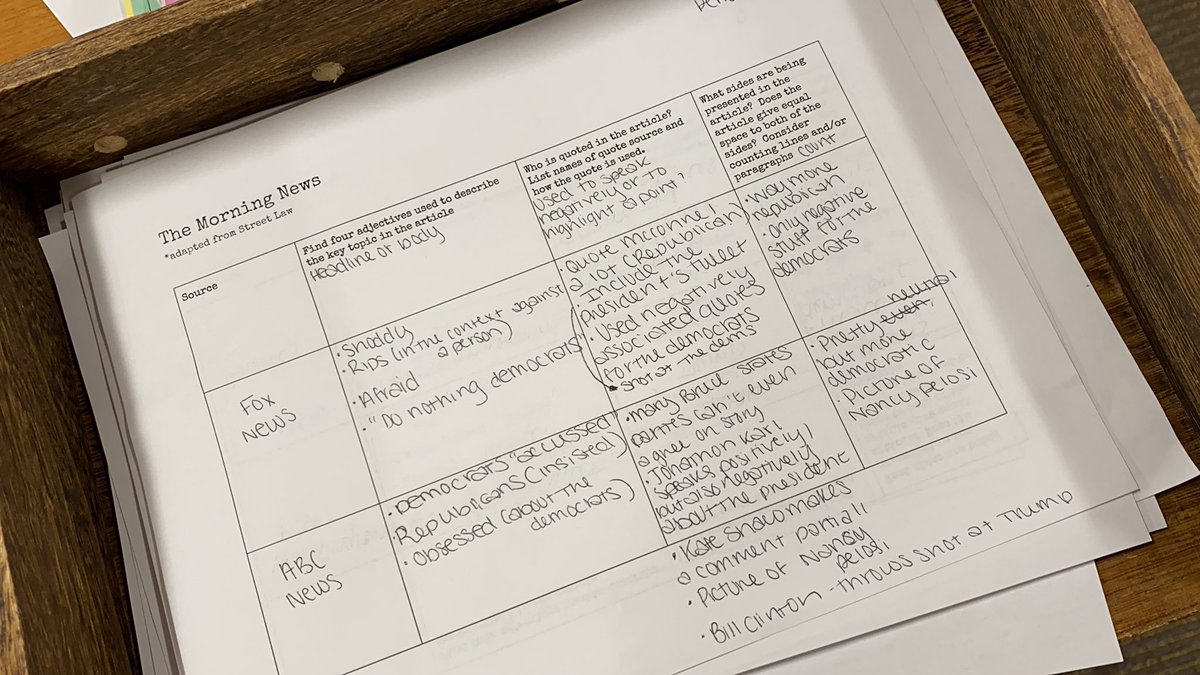 The Morning News
*adapted from Street Law
Source
Find four adjectives used to describe
the key topic in the article
Headline or body
Who is quoted in the article?
List names of quote source and
how the quote is used.
used to speak
negatively or to
highlight a point?
What sides are being
presented in the
article? Does the
article give equal
space to both of the
sides? Consider
counting lines and/or
paragraphs count
FOX
NEWS
• Shoddy
• Rips (in the context against
a person)
• Afraid
• "Do nothing democrats"
• Quote McConnel
a lot (Republican)
• Include the
President's tweet
• Used negatively
associated quotes
for the democrats
shot at the dems
• Way more
republican
• only negative
stuff for the
democrats
ABC
NEWS
• Democrats "accussed"
• Republicans (insisted)
• Obsessed (about the
democrats)
• Mary Bruce states
parties can't even
agree on story
• Jonathon Karl
speaks positively/
but also negatively
about the president
• Kate Shaw makes
a comment
• Picture of Nancy
Pelosi
• Bill Clinton - throws shot at Trump
• Pretty even, neutral
but more
democratic
• Picture of
Nancy Pelosi